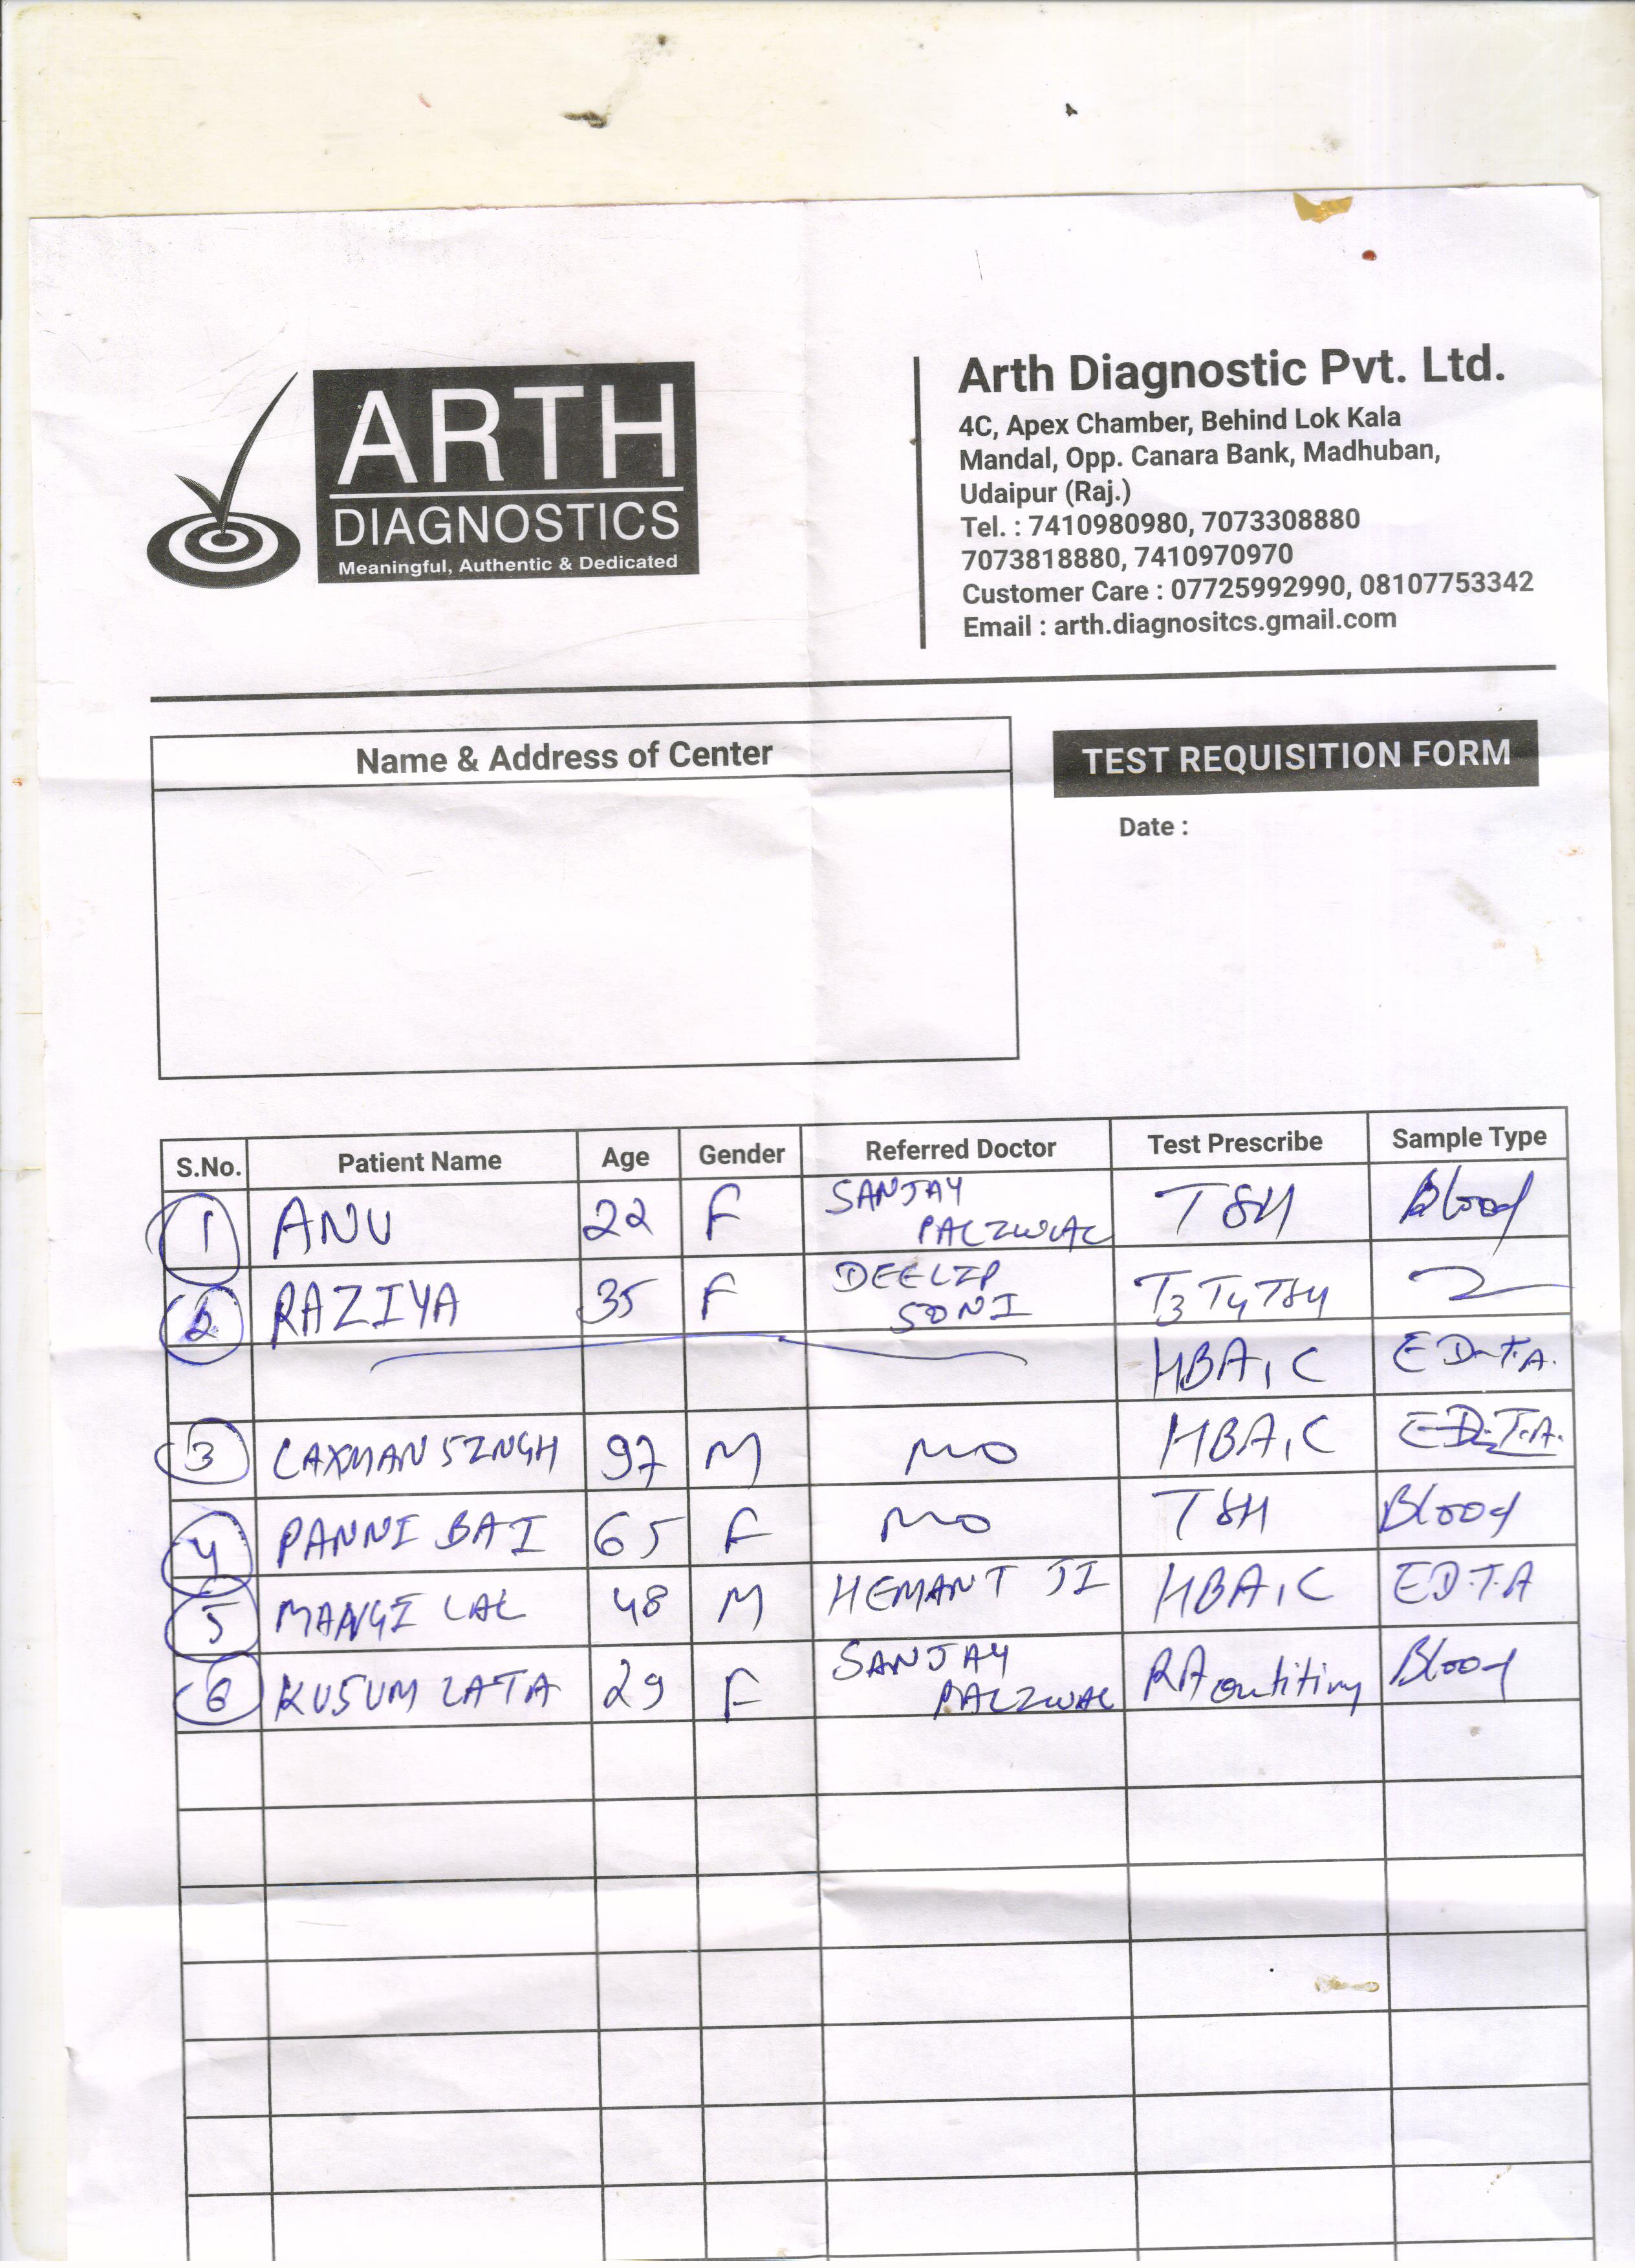 ARTH
DIAGNOSTICS
Meaningful, Authentic & Dedicated
Arth Diagnostic Pvt. Ltd.
4C, Apex Chamber, Behind Lok Kala
Mandal, Opp. Canara Bank, Madhuban,
Udaipur (Raj.)
Tel. : 7410980980, 7073308880
7073818880, 7410970970
Customer Care : 07725992990, 08107753342
Email : arth.diagnositcs.gmail.com
Name & Address of Center
TEST REQUISITION FORM
Date :
S.No. Patient Name Age Gender Referred Doctor Test Prescribe Sample Type
1 ANU 22 F SANJAY PALIWAL TSH Blood
2 RAZIYA 35 F DEELIP SONI T3 T4 TSH
HBA1C E.D.T.A.
3 LAXMAN SINGH 97 M MO HBA1C E.D.T.A.
4 PANNI BAI 65 F MO TSH Blood
5 MANGI LAL 48 M HEMANT JI HBA1C E.D.T.A
6 KUSUM LATA 29 F SANJAY PALIWAL RA Blood